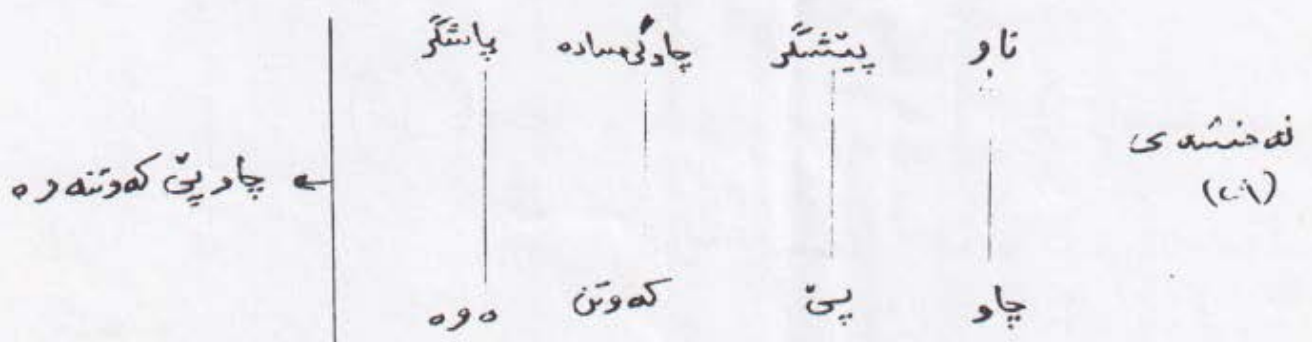 ناو پێشگر چاوگی سادە پاشگر
نەخشەی
(٢٠١)
← چاو پێ کەوتنەوە
چاو پێ کەوتن ەوە